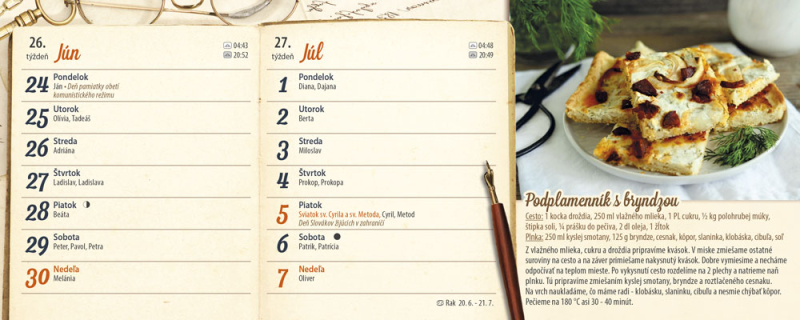 26.
týždeň
Jún
04:43
20:52
24
Pondelok
Ján • Deň pamiatky obetí
komunistického režimu
25
Utorok
Olívia, Tadeáš
26
Streda
Adriána
27
Štvrtok
Ladislav, Ladislava
28
Piatok
Beáta
29
Sobota
Peter, Pavol, Petra
30
Nedeľa
Melánia
27.
týždeň
Júl
04:48
20:49
1
Pondelok
Diana, Dajana
2
Utorok
Berta
3
Streda
Miloslav
4
Štvrtok
Prokop, Prokopa
5
Piatok
Sviatok sv. Cyrila a sv. Metoda, Cyril, Metod
Deň Slovákov žijúcich v zahraničí
6
Sobota
Patrik, Patrícia
7
Nedeľa
Oliver
Rak 20. 6. - 21. 7.
Podplamenník s bryndzou
Cesto: 1 kocka droždia, 250 ml vlažného mlieka, 1 PL cukru, ½ kg polohrubej múky,
štipka soli, ¼ prášku do pečiva, 2 dl oleja, 1 žĺtok
Plnka: 250 ml kyslej smotany, 125 g bryndze, cesnak, kôpor, slaninka, klobáska, cibuľa, soľ
Z vlažného mlieka, cukru a droždia pripravíme kvások. V miske zmiešame ostatné
suroviny na cesto a na záver primiešame nakysnutý kvások. Dobre vymiesime a necháme
odpočívať na teplom mieste. Po vykysnutí cesto rozdelíme na 2 plechy a natrieme naň
plnku. Tú pripravíme zmiešaním kyslej smotany, bryndze a roztlačeného cesnaku.
Na vrch naukladáme, čo máme radi - klobásku, slaninku, cibuľu a nesmie chýbať kôpor.
Pečieme na 180 °C asi 30 - 40 minút.